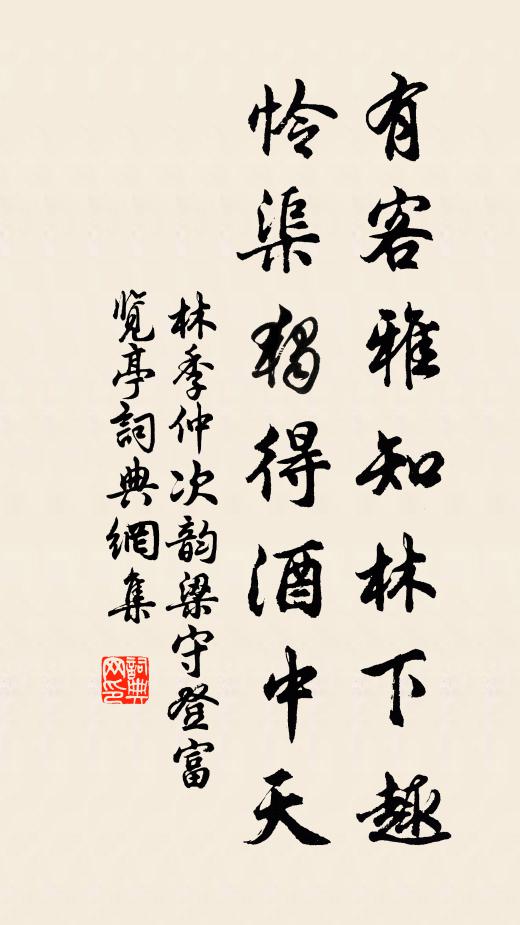 有客雅知林下趣
怜渠独得酒中天
林季仲次韵梁守登富
览亭詞典網集
詞典网印